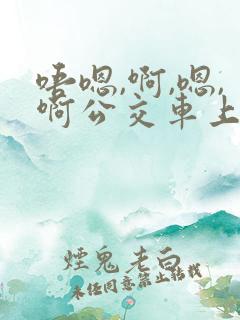 唔嗯,啊,嗯,
啊公交車上
煙鬼老白
未任同意禁止转载